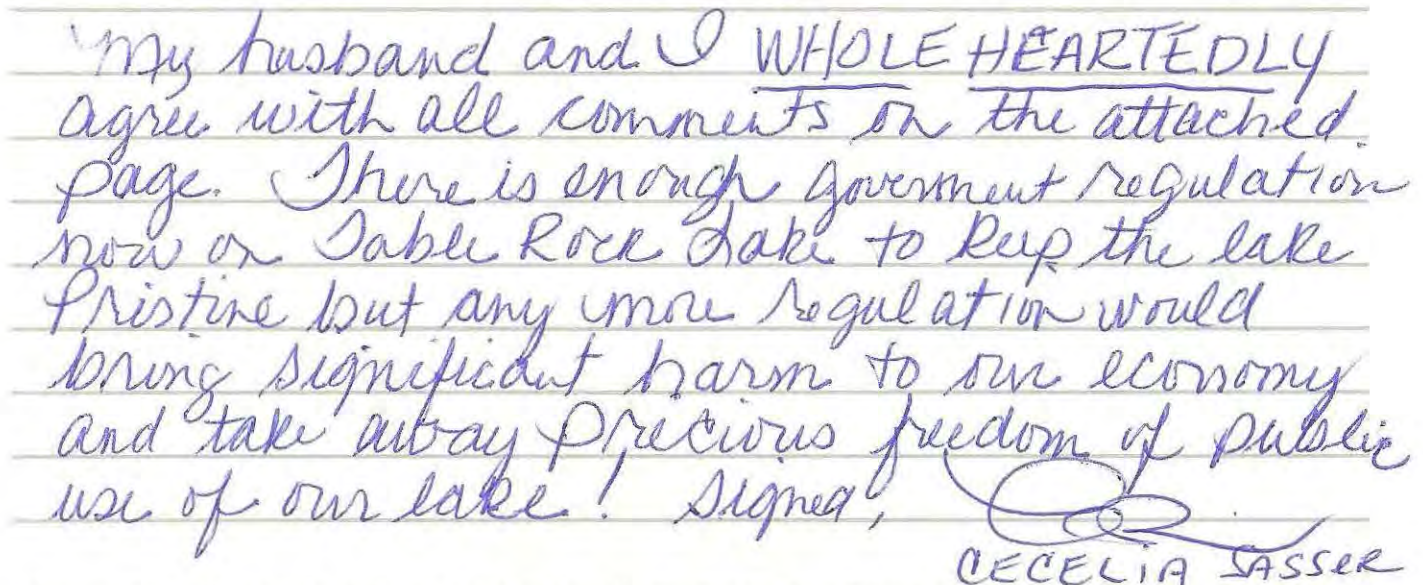 "My husband and I WHOLE HEARTEDLY
agree with all comments on the attached
page. There is enough goverment regulation
now on Table Rock Lake to keep the lake
Pristine but any more regulation would
bring significant harm to our economy
and take away precious freedom of public
use of our lake! Signed,
CECELIA SASSER